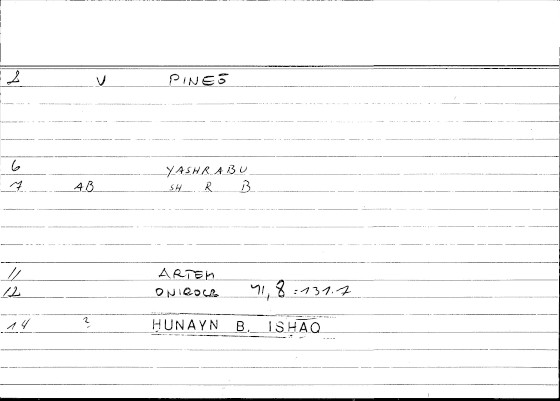 2 V PINES
6 YASHRABU
7 AB SH R B
11 ARTEM
12 ONIROCR 71, 8 = 131.7
14 ? HUNAYN B. ISHAQ